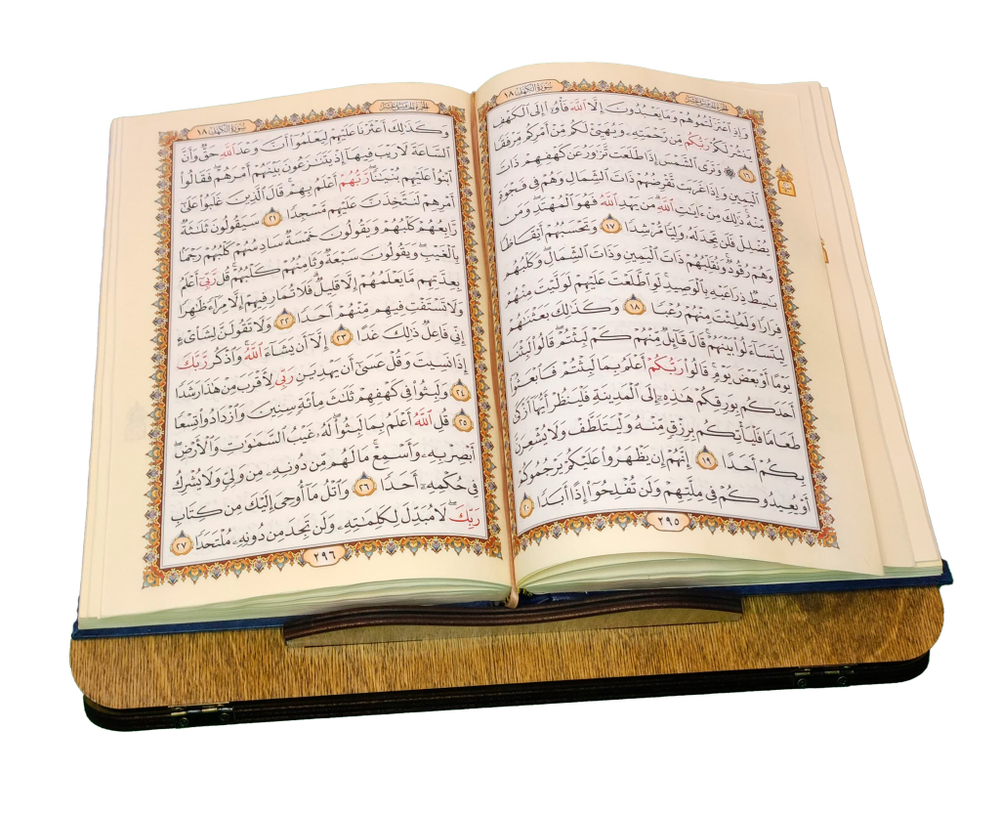 الجزء الخامس عشر
سورة الكهف ١٨
وَإِذِ ٱعۡتَزَلۡتُمُوهُمۡ وَمَا يَعۡبُدُونَ إِلَّا ٱللَّهَ فَأۡوُۥٓاْ إِلَى ٱلۡكَهۡفِ
يَنشُرۡ لَكُمۡ رَبُّكُم مِّن رَّحۡمَتِهِۦ وَيُهَيِّئۡ لَكُم مِّنۡ أَمۡرِكُم مِّرۡفَقٗا
١٦ ۞ وَتَرَى ٱلشَّمۡسَ إِذَا طَلَعَت تَّزَٰوَرُ عَن كَهۡفِهِمۡ ذَاتَ
ٱلۡيَمِينِ وَإِذَا غَرَبَت تَّقۡرِضُهُمۡ ذَاتَ ٱلشِّمَالِ وَهُمۡ فِي فَجۡوَةٖ
مِّنۡهُۚ ذَٰلِكَ مِنۡ ءَايَٰتِ ٱللَّهِۗ مَن يَهۡدِ ٱللَّهُ فَهُوَ ٱلۡمُهۡتَدِۖ وَمَن
يُضۡلِلۡ فَلَن تَجِدَ لَهُۥ وَلِيّٗا مُّرۡشِدٗا ١٧ وَتَحۡسَبُهُمۡ أَيۡقَاظٗا
وَهُمۡ رُقُودٞۚ وَنُقَلِّبُهُمۡ ذَاتَ ٱلۡيَمِينِ وَذَاتَ ٱلشِّمَالِۖ وَكَلۡبُهُم
بَٰسِطٞ ذِرَاعَيۡهِ بِٱلۡوَصِيدِۚ لَوِ ٱطَّلَعۡتَ عَلَيۡهِمۡ لَوَلَّيۡتَ مِنۡهُمۡ
فِرَارٗا وَلَمُلِئۡتَ مِنۡهُمۡ رُعۡبٗا ١٨ وَكَذَٰلِكَ بَعَثۡنَٰهُمۡ
لِيَتَسَآءَلُواْ بَيۡنَهُمۡۚ قَالَ قَآئِلٞ مِّنۡهُمۡ كَمۡ لَبِثۡتُمۡۖ قَالُواْ لَبِثۡنَا
يَوۡمًا أَوۡ بَعۡضَ يَوۡمٖۚ قَالُواْ رَبُّكُمۡ أَعۡلَمُ بِمَا لَبِثۡتُمۡ فَٱبۡعَثُوٓاْ
أَحَدَكُم بِوَرِقِكُمۡ هَٰذِهِۦٓ إِلَى ٱلۡمَدِينَةِ فَلۡيَنظُرۡ أَيُّهَآ أَزۡكَىٰ
طَعَامٗا فَلۡيَأۡتِكُم بِرِزۡقٖ مِّنۡهُ وَلۡيَتَلَطَّفۡ وَلَا يُشۡعِرَنَّ
بِكُمۡ أَحَدًا ١٩ إِنَّهُمۡ إِن يَظۡهَرُواْ عَلَيۡكُمۡ يَرۡجُمُوكُمۡ
أَوۡ يُعِيدُوكُمۡ فِي مِلَّتِهِمۡ وَلَن تُفۡلِحُوٓاْ إِذًا أَبَدٗا ٢٠
٢٩٥
الجزء الخامس عشر
سورة الكهف ١٨
وَكَذَٰلِكَ أَعۡثَرۡنَا عَلَيۡهِمۡ لِيَعۡلَمُوٓاْ أَنَّ وَعۡدَ ٱللَّهِ حَقّٞ وَأَنَّ
ٱلسَّاعَةَ لَا رَيۡبَ فِيهَآ إِذۡ يَتَنَٰزَعُونَ بَيۡنَهُمۡ أَمۡرَهُمۡۖ فَقَالُواْ
ٱبۡنُواْ عَلَيۡهِم بُنۡيَٰنٗاۖ رَّبُّهُمۡ أَعۡلَمُ بِهِمۡۚ قَالَ ٱلَّذِينَ غَلَبُواْ عَلَىٰٓ
أَمۡرِهِمۡ لَنَتَّخِذَنَّ عَلَيۡهِم مَّسۡجِدٗا ٢١ سَيَقُولُونَ ثَلَٰثَةٞ
رَّابِعُهُمۡ كَلۡبُهُمۡ وَيَقُولُونَ خَمۡسَةٞ سَادِسُهُمۡ كَلۡبُهُمۡ رَجۡمَۢا
بِٱلۡغَيۡبِۖ وَيَقُولُونَ سَبۡعَةٞ وَثَامِنُهُمۡ كَلۡبُهُمۡۚ قُل رَّبِّيٓ أَعۡلَمُ
بِعِدَّتِهِم مَّا يَعۡلَمُهُمۡ إِلَّا قَلِيلٞۗ فَلَا تُمَارِ فِيهِمۡ إِلَّا مِرَآءٗ ظَٰهِرٗا
وَلَا تَسۡتَفۡتِ فِيهِم مِّنۡهُمۡ أَحَدٗا ٢٢ وَلَا تَقُولَنَّ لِشَاْيۡءٍ
إِنِّي فَاعِلٞ ذَٰلِكَ غَدًا ٢٣ إِلَّآ أَن يَشَآءَ ٱللَّهُۚ وَٱذۡكُر رَّبَّكَ
إِذَا نَسِيتَ وَقُلۡ عَسَىٰٓ أَن يَهۡدِيَنِ رَبِّي لِأَقۡرَبَ مِنۡ هَٰذَا رَشَدٗا
٢٤ وَلَبِثُواْ فِي كَهۡفِهِمۡ ثَلَٰثَ مِاْئَةٖ سِنِينَ وَٱزۡدَادُواْ تِسۡعٗا
٢٥ قُلِ ٱللَّهُ أَعۡلَمُ بِمَا لَبِثُواْۖ لَهُۥ غَيۡبُ ٱلسَّمَٰوَٰتِ وَٱلۡأَرۡضِۖ
أَبۡصِرۡ بِهِۦ وَأَسۡمِعۡۚ مَا لَهُم مِّن دُونِهِۦ مِن وَلِيّٖ وَلَا يُشۡرِكُ
فِي حُكۡمِهِۦٓ أَحَدٗا ٢٦ وَٱتۡلُ مَآ أُوحِيَ إِلَيۡكَ مِن كِتَابِ
رَبِّكَۖ لَا مُبَدِّلَ لِكَلِمَٰتِهِۦ وَلَن تَجِدَ مِن دُونِهِۦ مُلۡتَحَدٗا ٢٧
٢٩٦